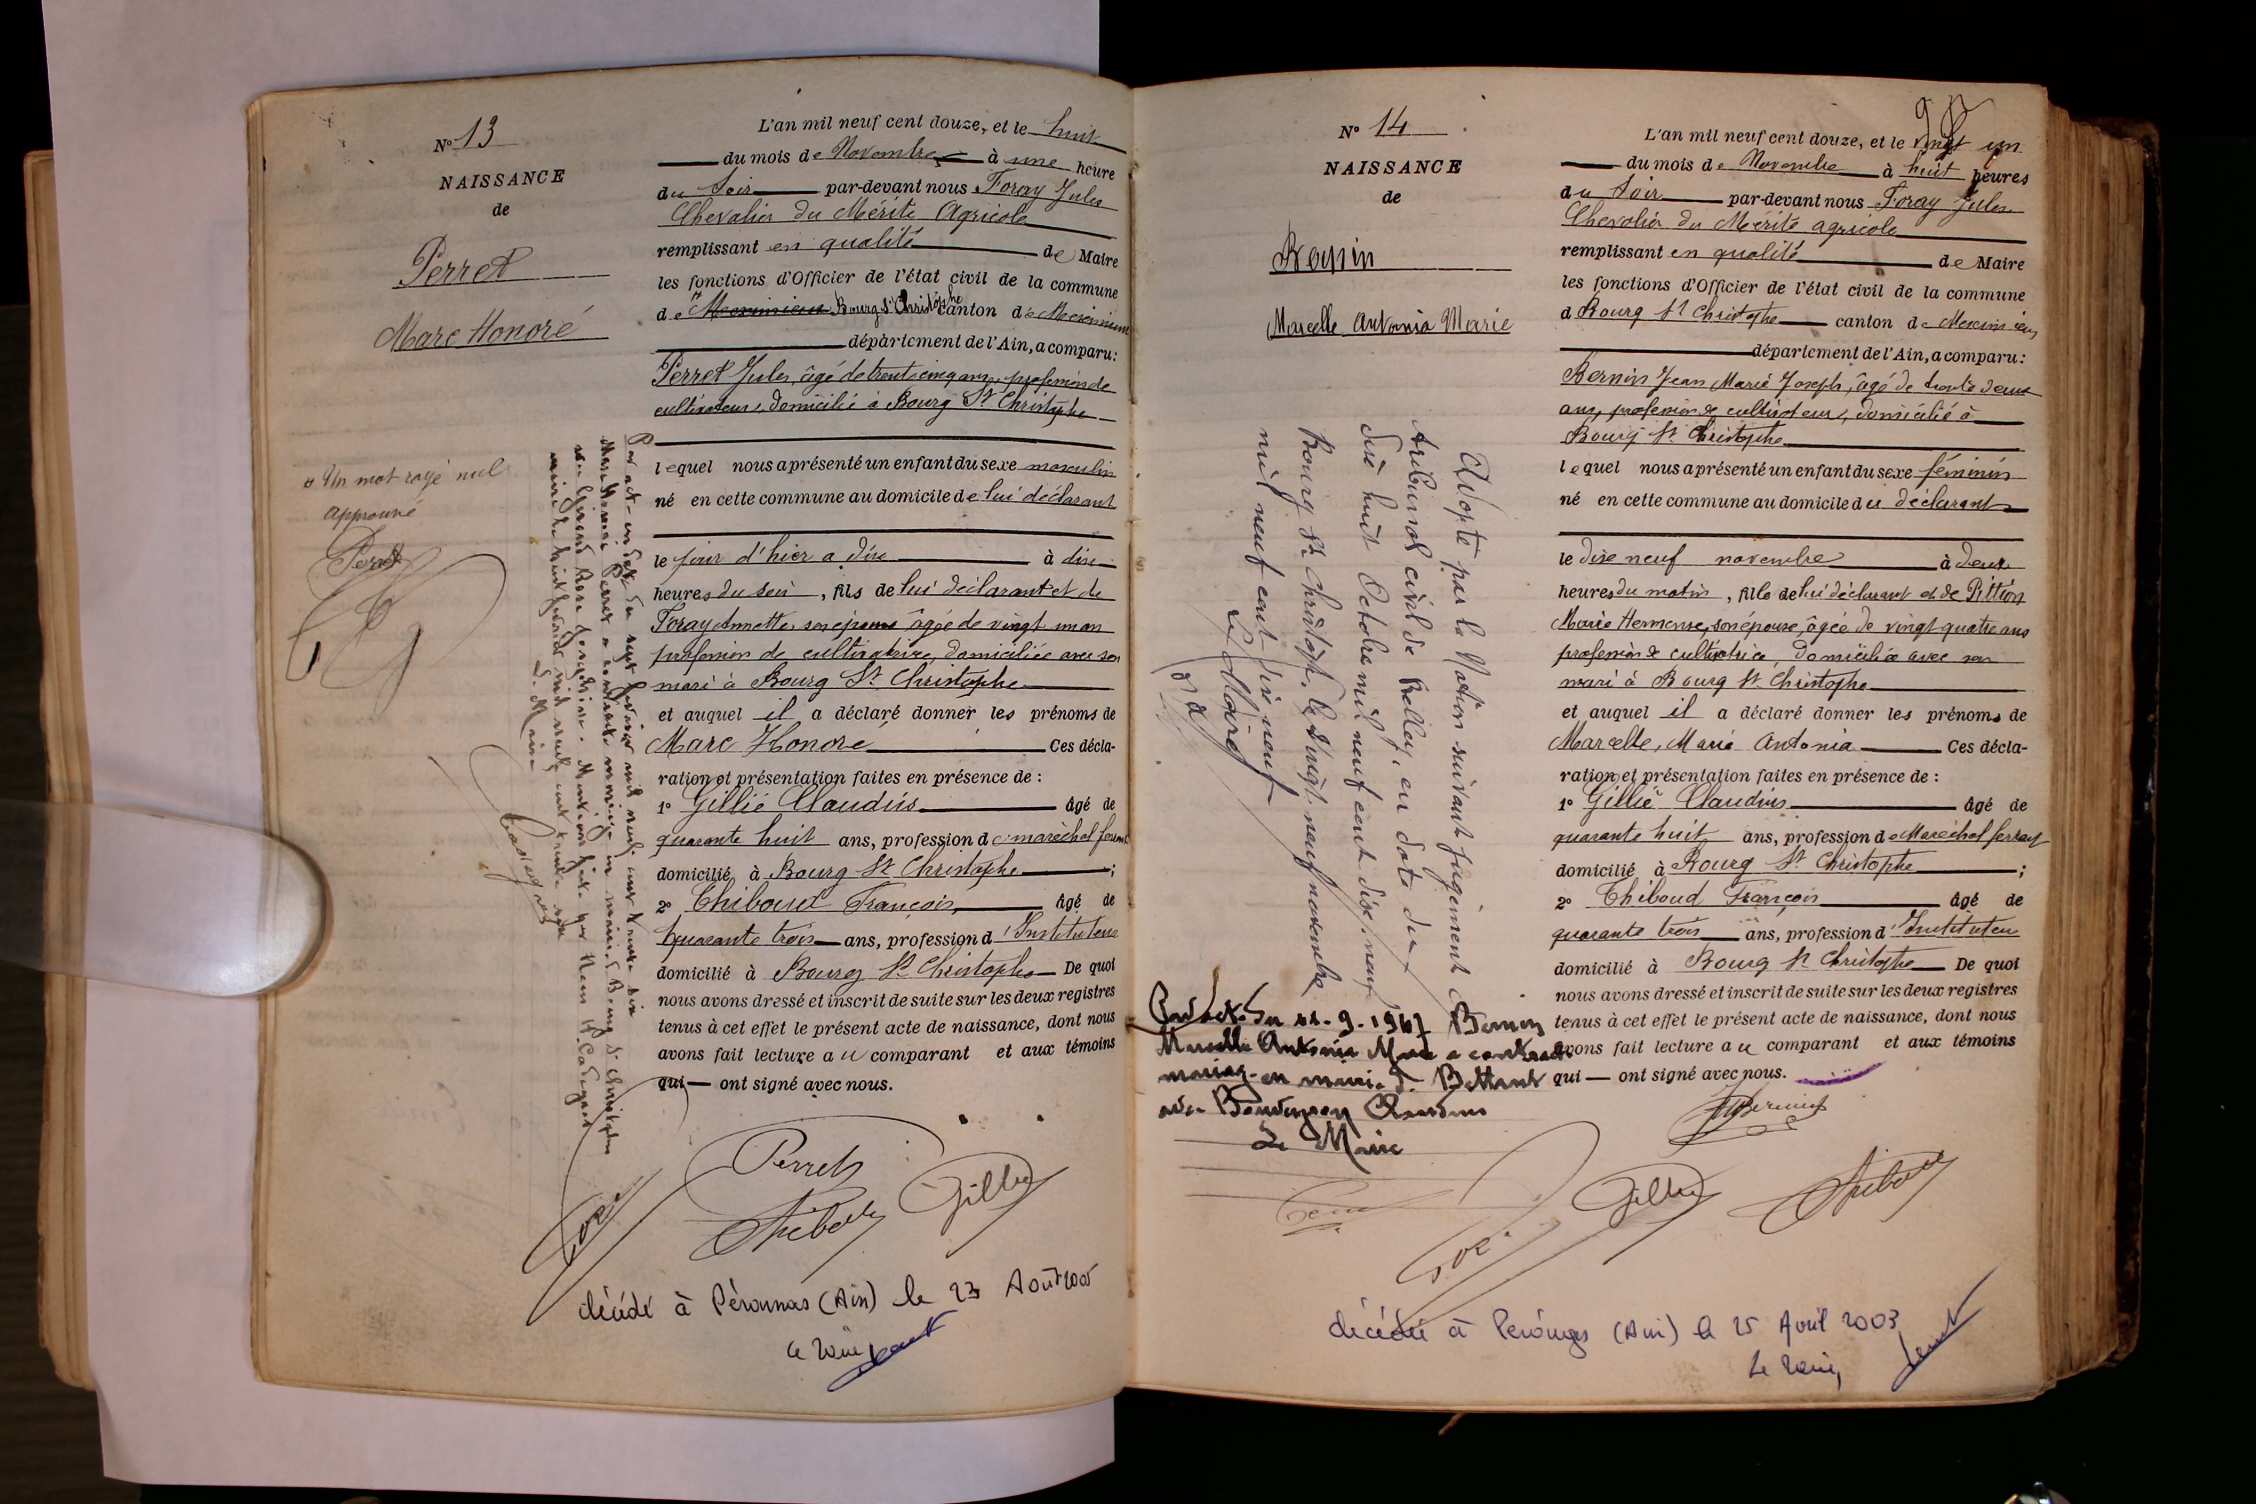 N° 13
NAISSANCE
de
Perret
Marc Honoré
* Un mot rayé nul
approuvé
Perret
L'an mil neuf cent douze, et le huit
du mois de Novembre à une heure
du Soir par-devant nous Foray Jules
Chevalier du Mérite Agricole
remplissant en qualité de Maire
les fonctions d'Officier de l'état civil de la commune
de Meximieux Bourg St Christophe canton de Meximieux
département de l'Ain, a comparu:
Perret Jules, âgé de trente cinq ans, profession de
cultivateur, domicilié à Bourg St Christophe
lequel nous a présenté un enfant du sexe masculin
né en cette commune au domicile de lui déclarant
le jour d'hier à dix
heures du soir, fils de lui déclarant et de
Foray Annette, son épouse âgée de vingt un an
profession de cultivatrice, domiciliée avec son
mari à Bourg St Christophe
et auquel il a déclaré donner les prénoms de
Marc Honoré Ces décla-
ration et présentation faites en présence de :
1° Gillié Claudius âgé de
quarante huit ans, profession de maréchal ferrant
domicilié à Bourg St Christophe ;
2° Thiboud François âgé de
quarante trois ans, profession d'Instituteur
domicilié à Bourg St Christophe De quoi
nous avons dressé et inscrit de suite sur les deux registres
tenus à cet effet le présent acte de naissance, dont nous
avons fait lecture au comparant et aux témoins
qui ont signé avec nous.
Marc Honoré Perret a contracté mariage en mairie de Bourg St Christophe
Le Maire
Perret
Gillié
Thiboud
décédé à Péronnas (Ain) le 23 Août 2005
Le Maire
N° 14
NAISSANCE
de
Bernin
Marcelle Antonia Marie
Adopté par la Nation suivant jugement
Tribunal civil de Belley, en date du
dix huit Octobre mil neuf cent dix neuf
Bourg St Christophe, le vingt neuf novembre
mil neuf cent dix neuf
Le Maire
Par acte du 11-9-1947 Bernin
Marcelle Antonia Marie a contracté
mariage en mairie de Bettant
avec
Le Maire
L'an mil neuf cent douze, et le vingt un
du mois de Novembre à huit heures
du Soir par-devant nous Foray Jules
Chevalier du Mérite agricole
remplissant en qualité de Maire
les fonctions d'Officier de l'état civil de la commune
d Bourg St Christophe canton de Meximieux
département de l'Ain, a comparu:
Bernin Jean Marie Joseph, âgé de trente deux
ans, profession de cultivateur, domicilié à
Bourg St Christophe
lequel nous a présenté un enfant du sexe féminin
né en cette commune au domicile du déclarant
le dix neuf novembre à deux
heures du matin, fille de lui déclarant et de Pittion
Marie Hermense, son épouse, âgée de vingt quatre ans
profession de cultivatrice, domiciliée avec son
mari à Bourg St Christophe
et auquel il a déclaré donner les prénoms de
Marcelle, Marie Antonia Ces décla-
ration et présentation faites en présence de :
1° Gillié Claudius âgé de
quarante huit ans, profession de Maréchal ferrant
domicilié à Bourg St Christophe ;
2° Thiboud François âgé de
quarante trois ans, profession d'Instituteur
domicilié à Bourg St Christophe De quoi
nous avons dressé et inscrit de suite sur les deux registres
tenus à cet effet le présent acte de naissance, dont nous
avons fait lecture au comparant et aux témoins
qui ont signé avec nous.
Bernin
Gillié
Thiboud
décédée à Pérouges (Ain) le 25 Avril 2003
Le Maire,